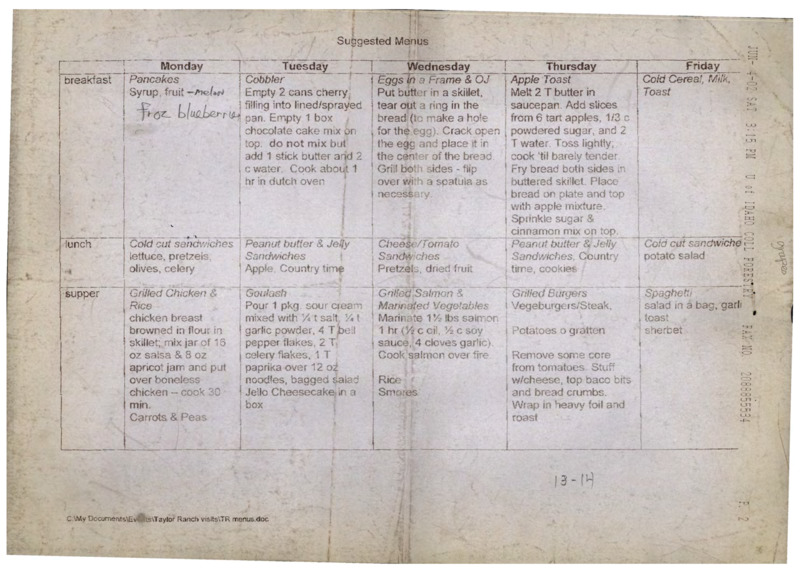 Suggested Menus
Monday
Tuesday
Wednesday
Thursday
Friday
breakfast
Pancakes
Syrup, fruit – melon
froz blueberries
Cobbler
Empty 2 cans cherry
filling into lined/sprayed
pan. Empty 1 box
chocolate cake mix on
top. do not mix but
add 1 stick butter and 2
c water. Cook about 1
hr in dutch oven
Eggs in a Frame & OJ
Put butter in a skillet,
tear out a ring in the
bread (to make a hole
for the egg). Crack open
the egg and place it in
the center of the bread
Grill both sides - flip
over with a spatula as
necessary.
Apple Toast
Melt 2 T butter in
saucepan. Add slices
from 6 tart apples, 1/3 c
powdered sugar, and 2
T water. Toss lightly;
cook 'til barely tender.
Fry bread both sides in
buttered skillet. Place
bread on plate and top
with apple mixture.
Sprinkle sugar &
cinnamon mix on top.
Cold Cereal, Milk,
Toast
lunch
Cold cut sandwiches
lettuce, pretzels,
olives, celery
Peanut butter & Jelly
Sandwiches
Apple, Country time
Cheese/Tomato
Sandwiches
Pretzels, dried fruit
Peanut butter & Jelly
Sandwiches, Country
time, cookies
Cold cut sandwiche
potato salad
grapes
supper
Grilled Chicken &
Rice
chicken breast
browned in flour in
skillet; mix jar of 16
oz salsa & 8 oz
apricot jam and put
over boneless
chicken – cook 30
min.
Carrots & Peas
Goulash
Pour 1 pkg. sour cream
mixed with ¼ t salt, ¼ t
garlic powder, 4 T bell
pepper flakes, 2 T
celery flakes, 1 T
paprika over 12 oz
noodles, bagged salad
Jello Cheesecake in a
box
Grilled Salmon &
Marinated Vegetables
Marinate 1½ lbs salmon
1 hr (½ c oil, ½ c soy
sauce, 4 cloves garlic).
Cook salmon over fire
Rice
Smores
Grilled Burgers
Vegeburgers/Steak,
Potatoes o gratten
Remove some core
from tomatoes. Stuff
w/cheese, top baco bits
and bread crumbs.
Wrap in heavy foil and
roast
Spaghetti
salad in a bag, garli
toast
sherbet
13-14
JUN- 4-02 SAT 3:15 PM U of IDAHO COLL FORESTRY FAX NO. 2088855534 P. 2
C:\My Documents\Taylor Ranch visits\TR menus.doc